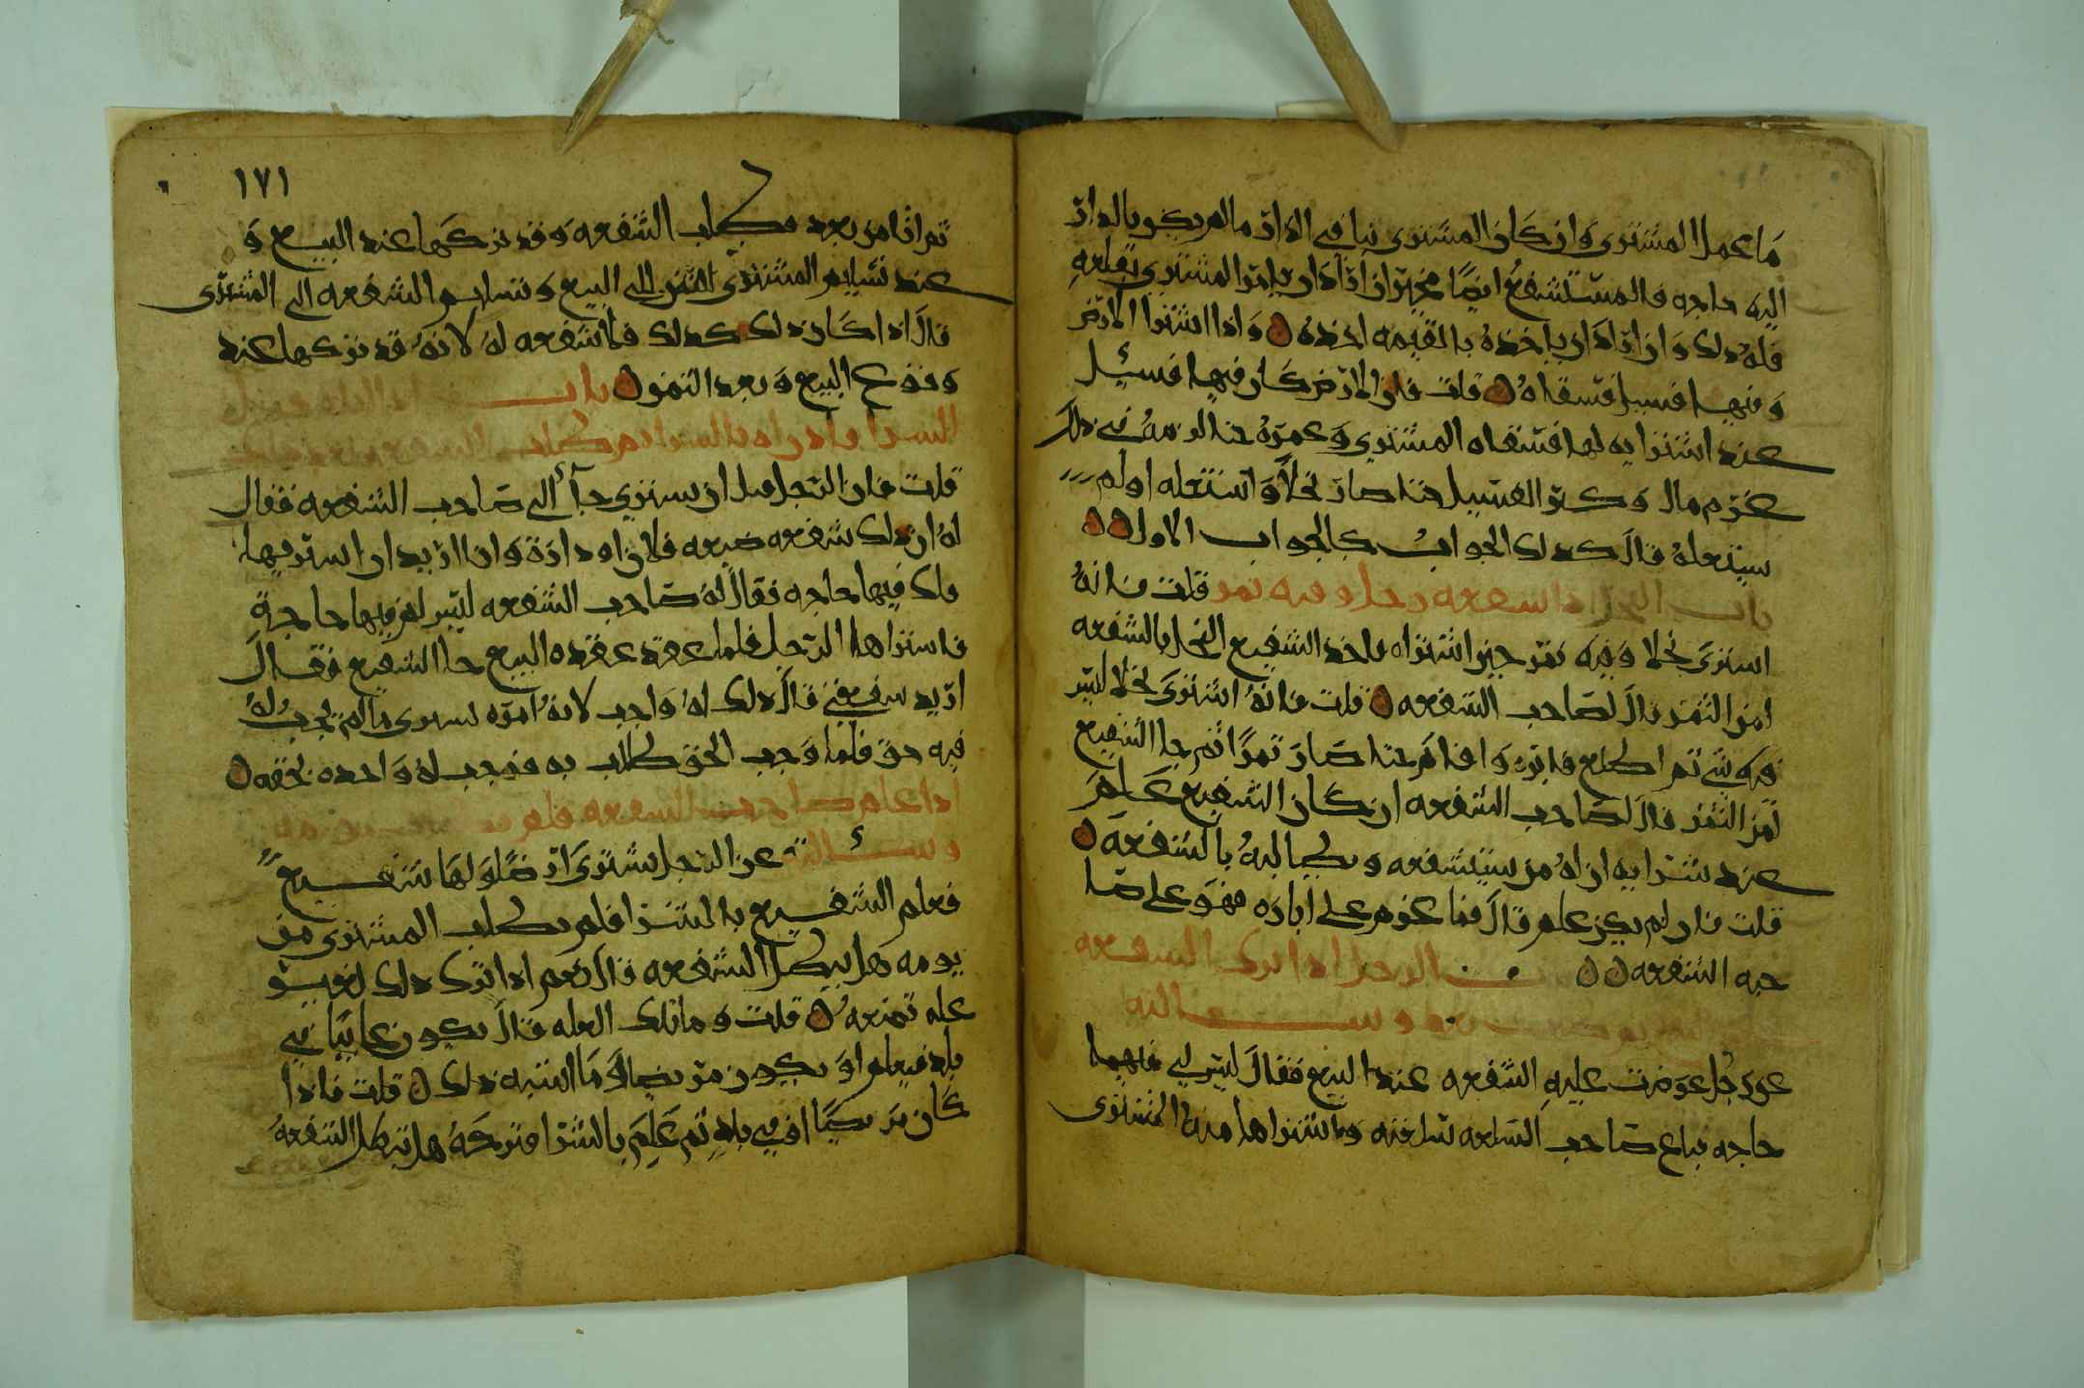 ما عمل المشتري وان كان المشتري بنا في الدار ما لم يكن بالدار
اليه حاجه فالمستشفع ايضا مخير ان اراد ان يامر المشتري بقلعه
فله ذلك وان اراد ان ياخذه بالقيمه اخذه واذا اشترا الارض
وفيها فسيل فسقاه قلت فان الارض كان فيها فسيل
عند اشترايه لها فسقاه المشتري وعمره حتا لزمه في ذلك
غرم مال وكبر الفسيل حتا صار نخلا واستغله او لم
يستغله قال كذلك الجواب كالجواب الاول
باب النخل اذا استشفعه رجل وفيه ثمر قلت فانه
اشترى نخلا وفيه ثمر حين اشتراه فاخذ الشفيع النخل بالشفعه
لمن الثمر قال لصاحب الشفعه قلت فانه اشترى نخلا ليس
فيه شي ثم اطلع فابره واقام حتا صار تمرا ثم جا الشفيع
لمن الثمر قال لصاحب الشفعه ان كان الشفيع علم
عند شرايه ان له من يستشفعه ويطالبه بالشفعه
قلت فان لم يكن علم قال فما غرم على اباره فهو على صا
حبه الشفعه الرجل اذا ترك الشفعه
وسالته
عن رجل عرضت عليه الشفعه عند البيع فقال ليس لي فيها
حاجه فباع صاحب السلعه سلعته واشتراها منه المشتري
١٧١
ثم اتا من بعد يطلب الشفعه وقد تركها عند البيع و
عند تسليم المشتري الثمن الى البيع وتسليم الشفعه الى المشترى
قال اذا كان ذلك كذلك فلا شفعه له لانه قد تركها عند
وقوع البيع وبعد الثمن باب
الشرا يطلب الشفعه
قلت فان الرجل قبل ان يشتري جا الى صاحب الشفعه فقال
له ان لك شفعه ضيعه فلان او داره وانا اريد ان اشتريها
فلك فيها حاجه فقال له صاحب الشفعه ليس لي فيها حاجة
فاشتراها الرجل فلما عقد عقده البيع جا الشفيع فقال
اريد شفعتي قال ذلك له واجب لانه امره بشرى ما لم يجب له
فيه حق فلما وجب الحق طالب به فوجب له واخذه بحقه
اذا علم صاحب الشفعه فلم
وسالته عن الرجل يشترى ارضا ولها شفيع
فعلم الشفيع بالشرا فلم يطلب المشتري من
يومه هل يبطل الشفعه قال نعم اذا ترك ذلك لغير
عله تمنعه قلت وما تلك العله قال يكون غايبا في
بلد فيعلم او يكون مريضا وما اشبه ذلك قلت فاذا
كان مريضا او في بلد ثم علم بالشرا فتركه هل تبطل الشفعه